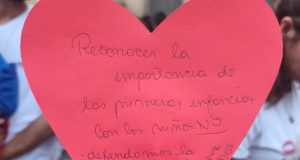 Reconocer la
importancia de
las primeras infancias
con los niños NO
defendamos la